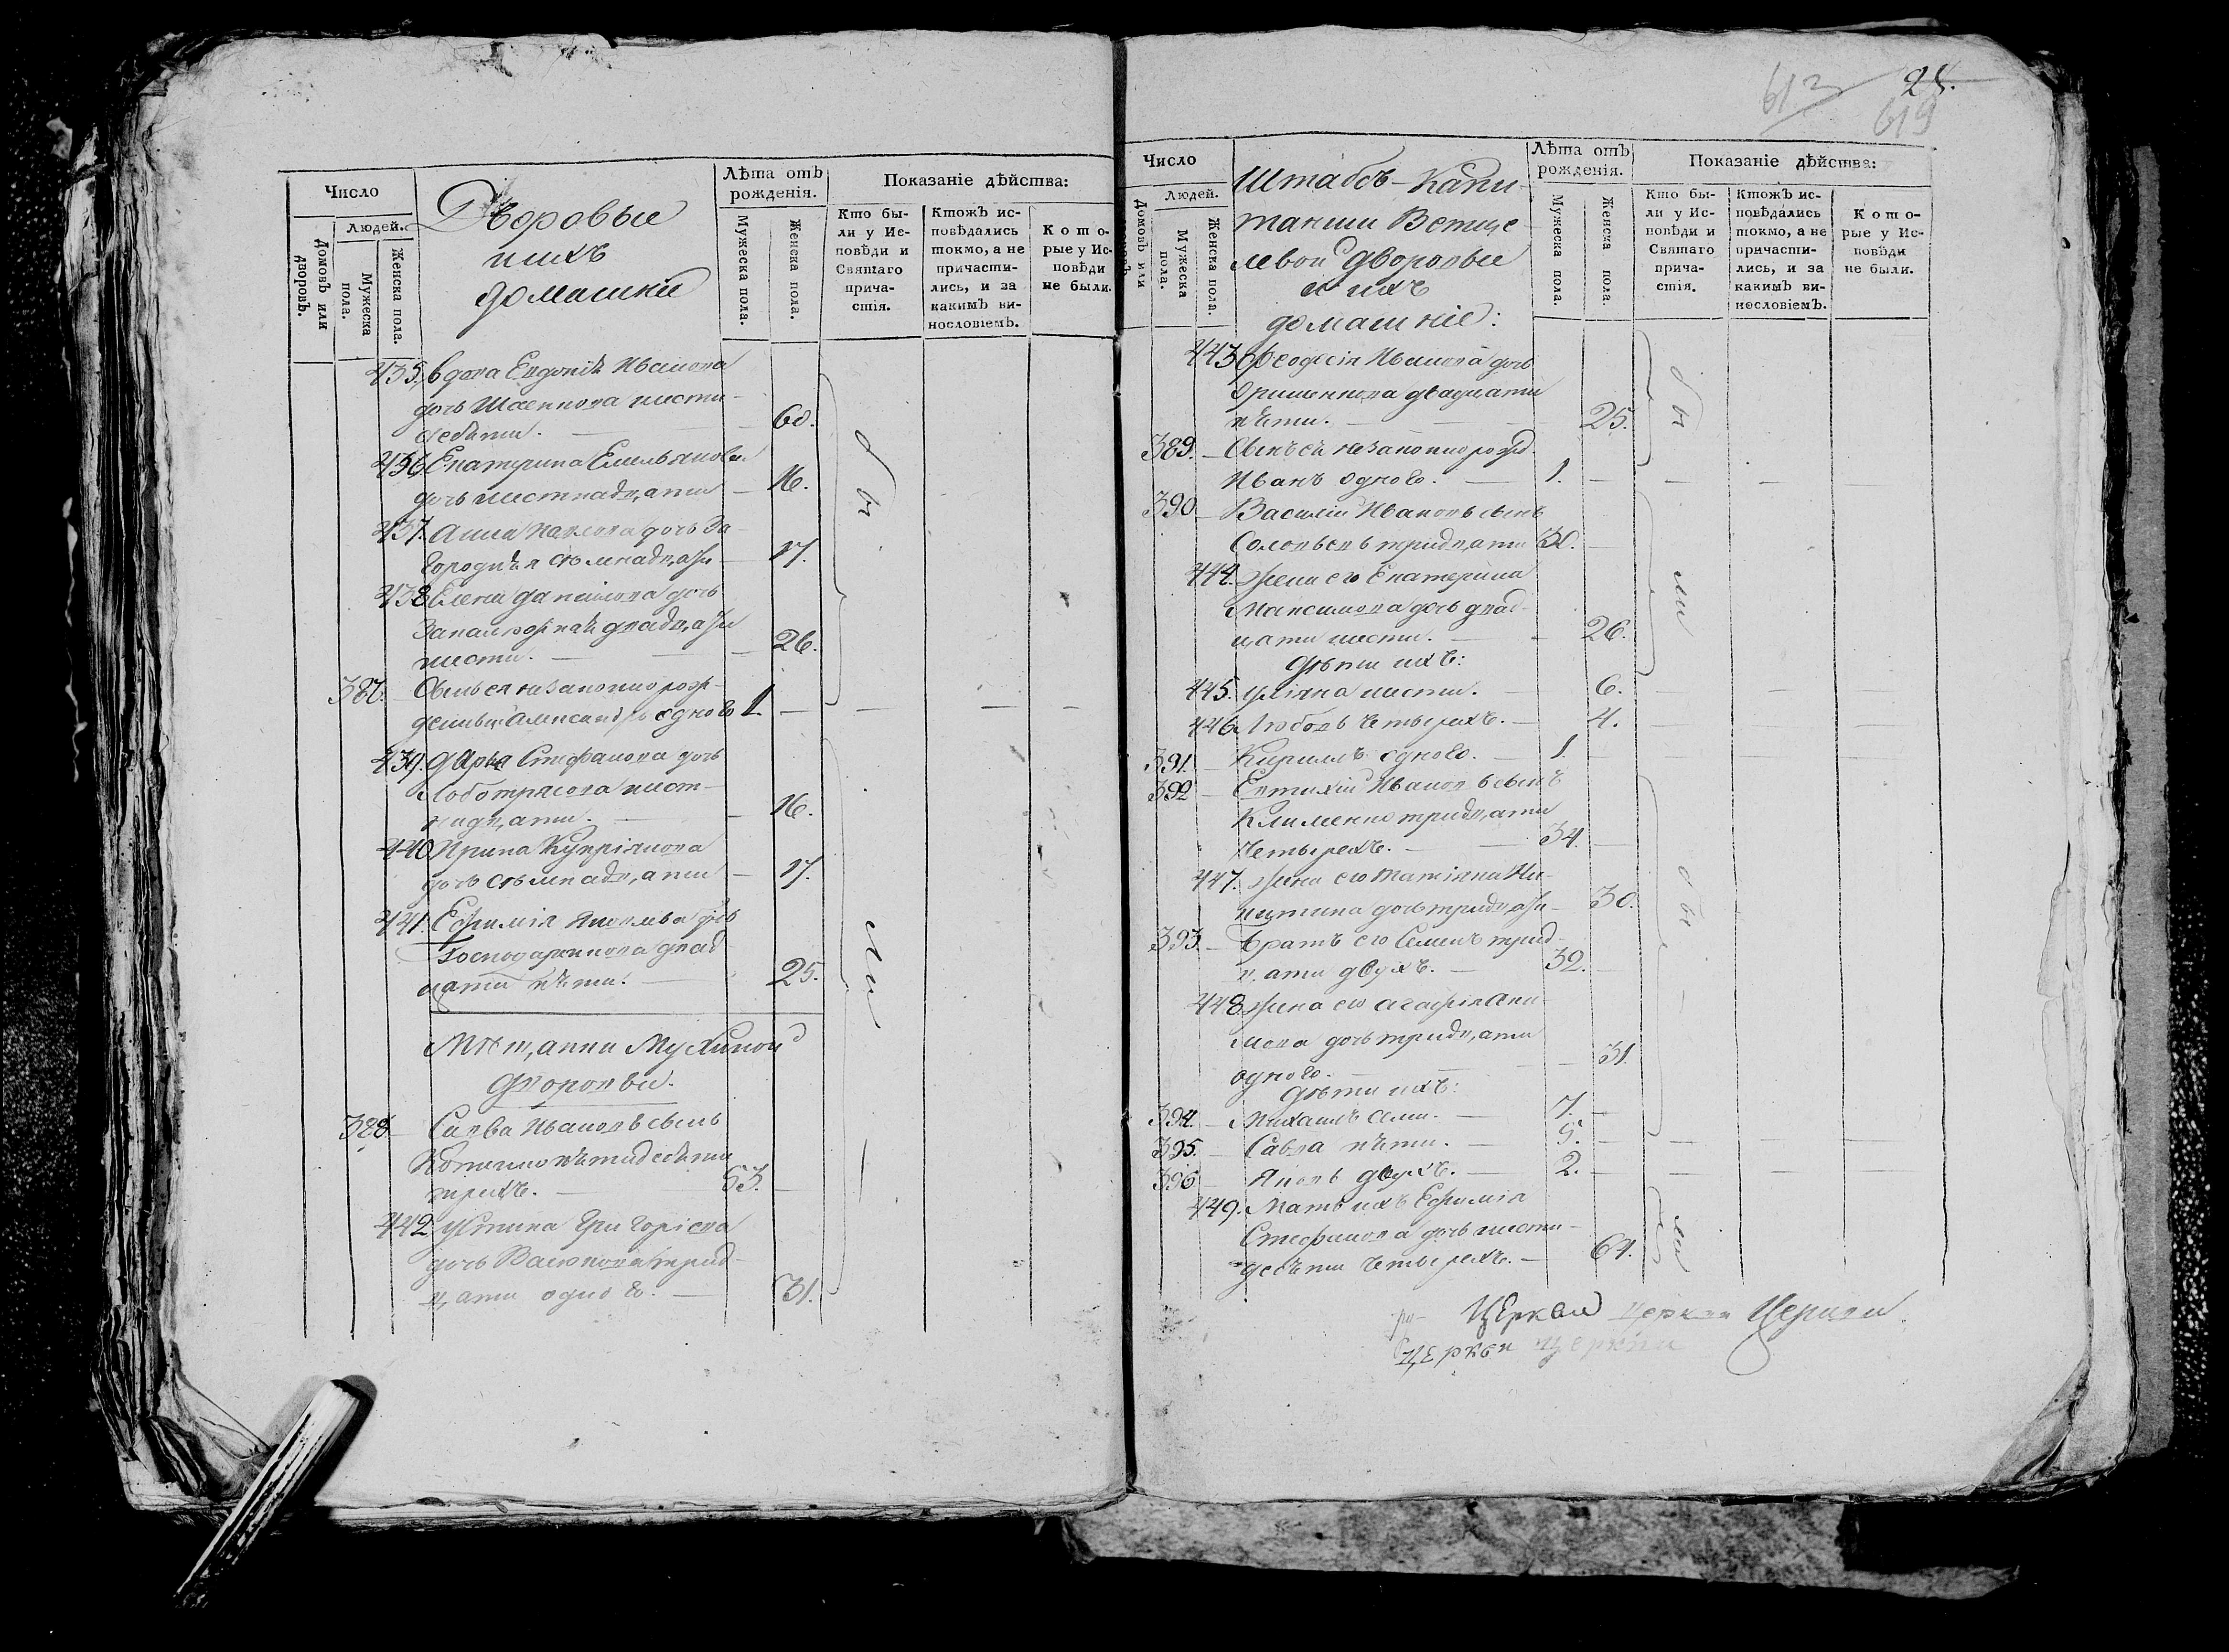 Число
Людей.
Домовъ или дворовъ.
Мужеска пола.
Женска пола.
Дворовые
ихъ
домашніе
Лѣта отъ
рожденія.
Мужеска пола.
Женска пола.
Показаніе дѣйства:
Кто бы-
ли у Ис-
повѣди и
Святаго
прича-
стія.
Ктожъ ис-
повѣдались
токмо, а не
причасти-
лись, и за
какимъ ви-
нословіемъ.
Кото-
рые у Ис-
повѣди
не были.
435. вдова Евдокія Иванова
дочь шести-
десяти. 60.
436. Екатерина Емельянова
дочь шестнадцати 16.
437. Анна Павлова дочь За-
городняя семнадцати 17.
438. Елена Данилова дочь
двадцати
шести. 26.
387. Сынъ ея незаконнорож-
денный Александръ одного 1.
439. Дарья Стефанова дочь
Лоботрясова шест-
надцати. 16.
440. Ирина Купріянова
дочь семнадцати 17.
441. Ефимія Яковлева дочь
Господарикова двад-
цати пяти. 25.
бы
ли
Мѣщанки Мухиной
дворовые.
388. Савва Ивановъ сынъ
пятидесяти
трехъ. 53.
442. Устина Григоріева
дочь трид-
цати одного. 31.
613
28.
619
Число
Людей.
Домовъ или дворовъ.
Мужеска пола.
Женска пола.
Штабсъ-Капи-
танши Ветце-
левой дворовые
и ихъ
домашніе:
Лѣта отъ
рожденія.
Мужеска пола.
Женска пола.
Показаніе дѣйства:
Кто бы-
ли у Ис-
повѣди и
Святаго
прича-
стія.
Ктожъ ис-
повѣдались
токмо, а не
причасти-
лись, и за
какимъ ви-
нословіемъ.
Кото-
рые у Ис-
повѣди
не были.
443. Феодосія Иванова дочь
двадцати
пяти. 25.
389. Сынъ ея незаконнорожд.
Иванъ одного. 1.
390. Василій Ивановъ сынъ
Соловьевъ тридцати 30.
444. жена его Екатерина
Максимова дочь двад-
цати шести. 26.
Дѣти ихъ:
445. Уліяна шести. 6.
446. Любовь четырехъ. 4.
391. Кириллъ одного. 1.
392. Евтихій Ивановъ сынъ
Клименко тридцати
четырехъ. 34.
447. жена его Татіяна Ни-
китина дочь тридцати 30.
393. братъ его Семенъ трид-
цати двухъ. 32.
448. жена его Агафія Аки-
мова дочь тридцати
одного. 31.
Дѣти ихъ:
394. Михаилъ семи. 7.
395. Савва пяти. 5.
396. Яковъ двухъ. 2.
449. Мать ихъ Ефимія
Стефанова дочь шести-
десяти четырехъ. 64.
бы
ли
бы
ли
Церкви Церкви Церкви
Церкви Церкви